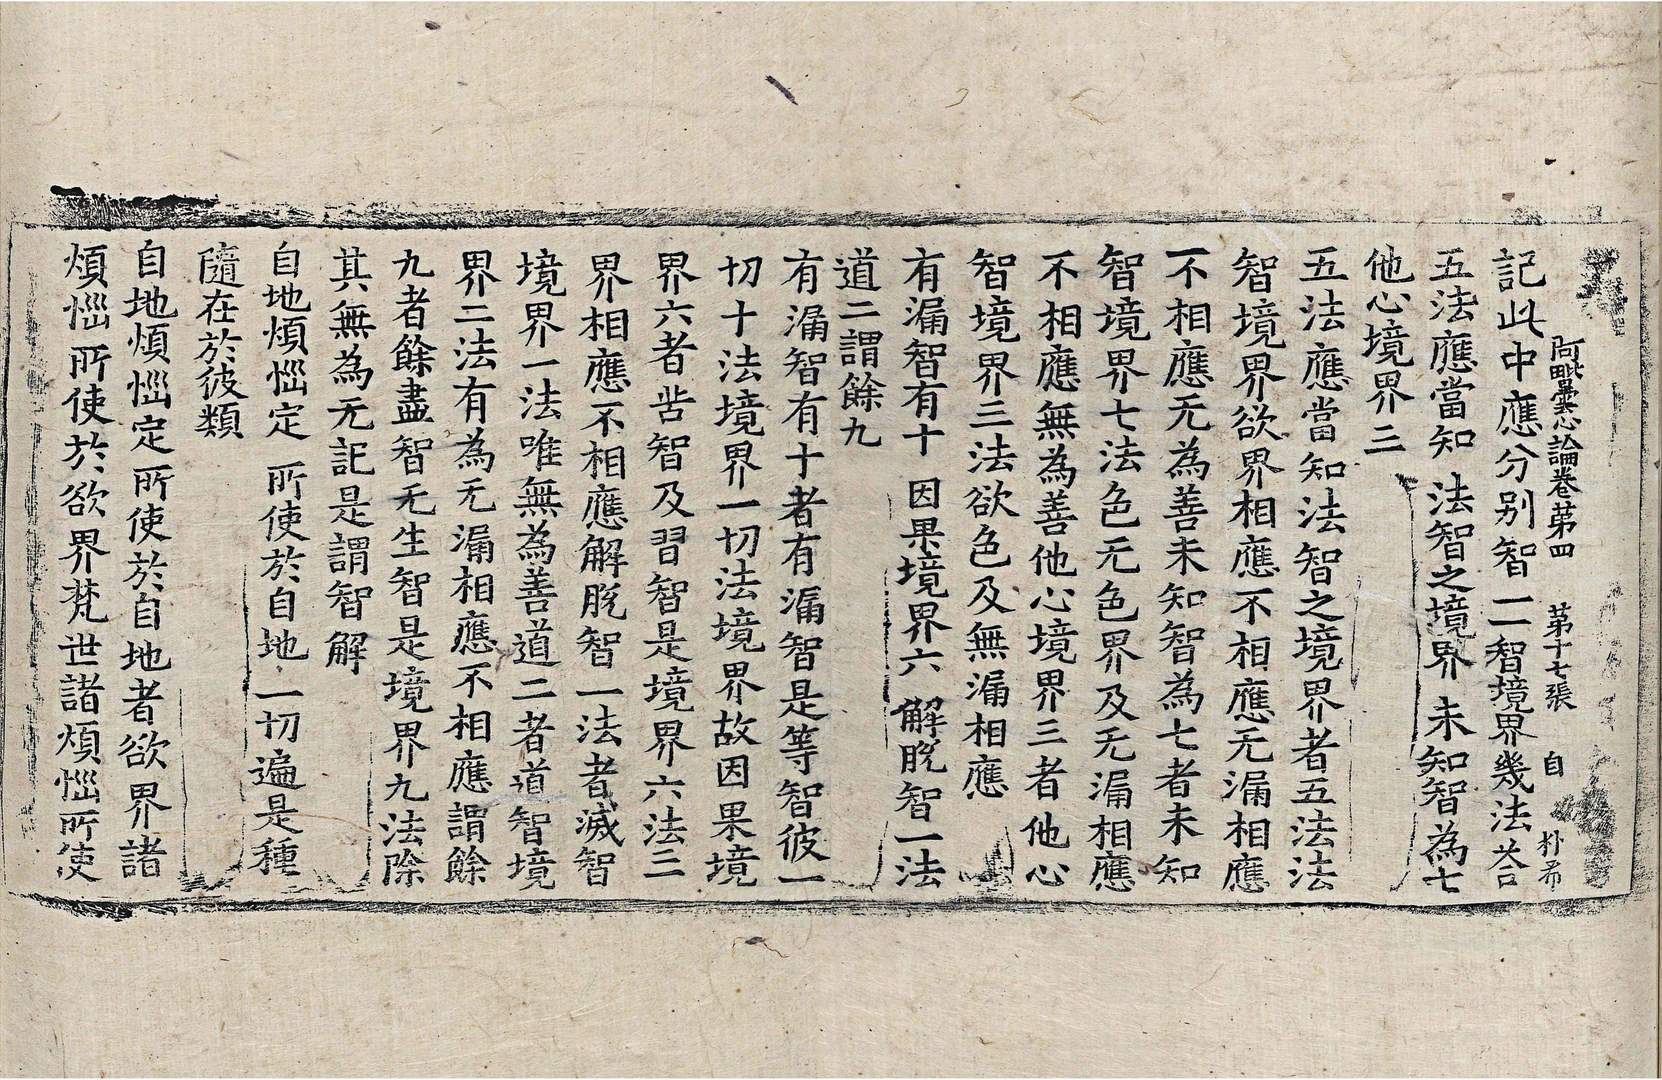 阿毗曇心論卷第四 第十七張 自 朴希
記此中應分別智一一智境界幾法荅
五法應當知 法智之境界 未知智為七
他心境界三
五法應當知法智之境界者五法法
智境界欲界相應不相應无漏相應
不相應无為善未知智為七者未知
智境界七法色无色界及无漏相應
不相應無為善他心境界三者他心
智境界三法欲色及無漏相應
有漏智有十 因果境界六 解脫智一法
道二謂餘九
有漏智有十者有漏智是等智彼一
切十法境界一切法境界故因果境
界六者苦智及習智是境界六法三
界相應不相應解脫智一法者滅智
境界一法唯無為善道二者道智境
界二法有為无漏相應不相應謂餘
九者餘盡智无生智是境界九法除
其無為无記是謂智解
自地煩惱定 所使於自地 一切遍是種
隨在於彼類
自地煩惱定所使於自地者欲界諸
煩惱所使於欲界梵世諸煩惱所使